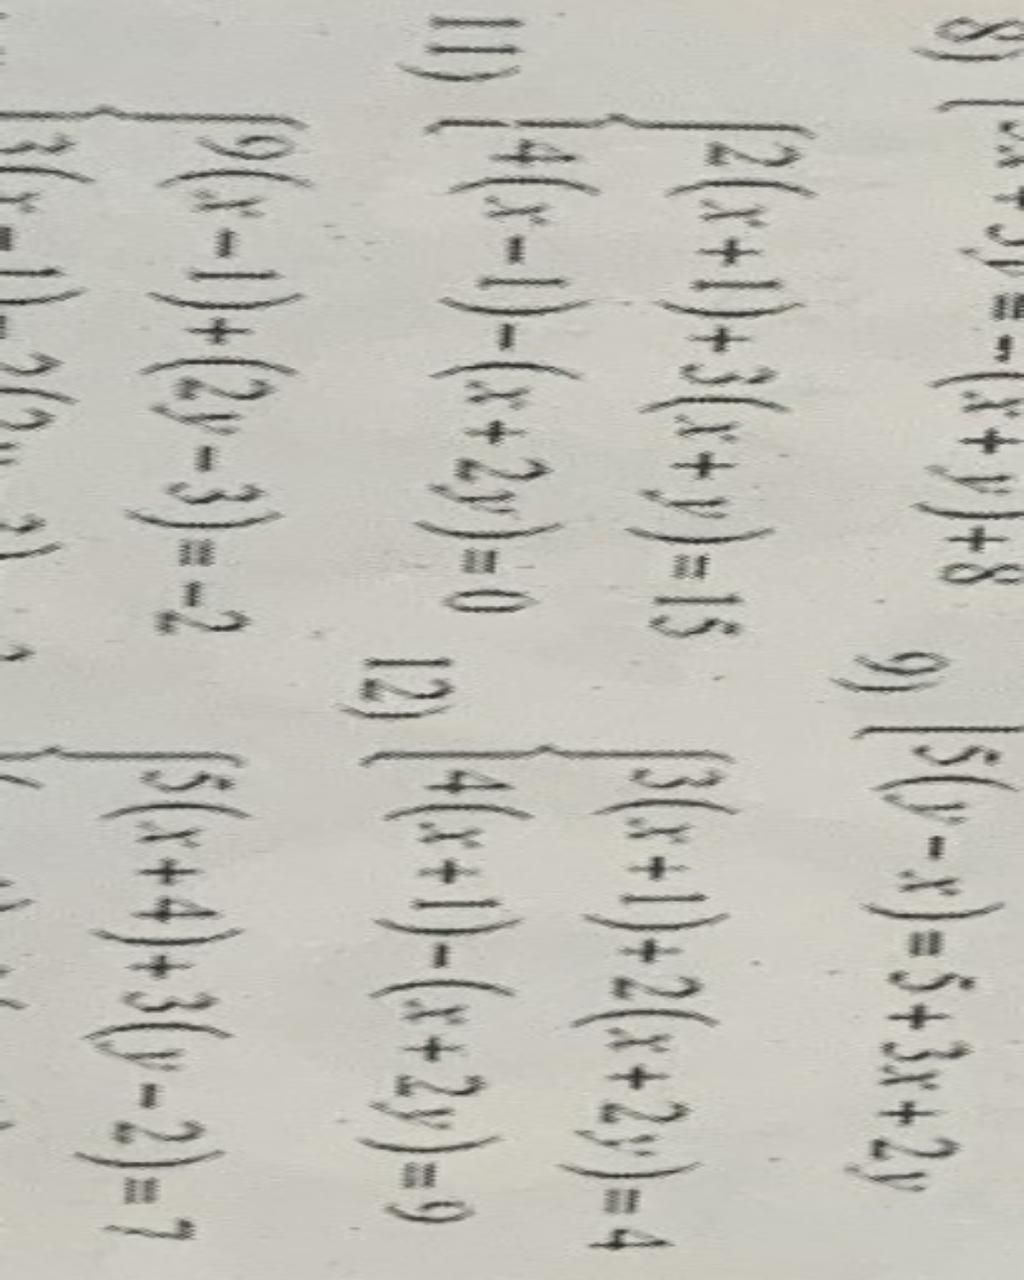 8)
+ 3y = -(x + y) + 8
9) 5(y - x) = 5 + 3x + 2y
11) { 2(x + 1) + 3(x + y) = 15
4(x - 1) - (x + 2y) = 0
12) { 3(x + 1) + 2(x + 2y) = 4
4(x + 1) - (x + 2y) = 9
{ 9(x - 1) + (2y - 3) = -2
3(x - 1) -
{ 5(x + 4) + 3(y - 2) = 7